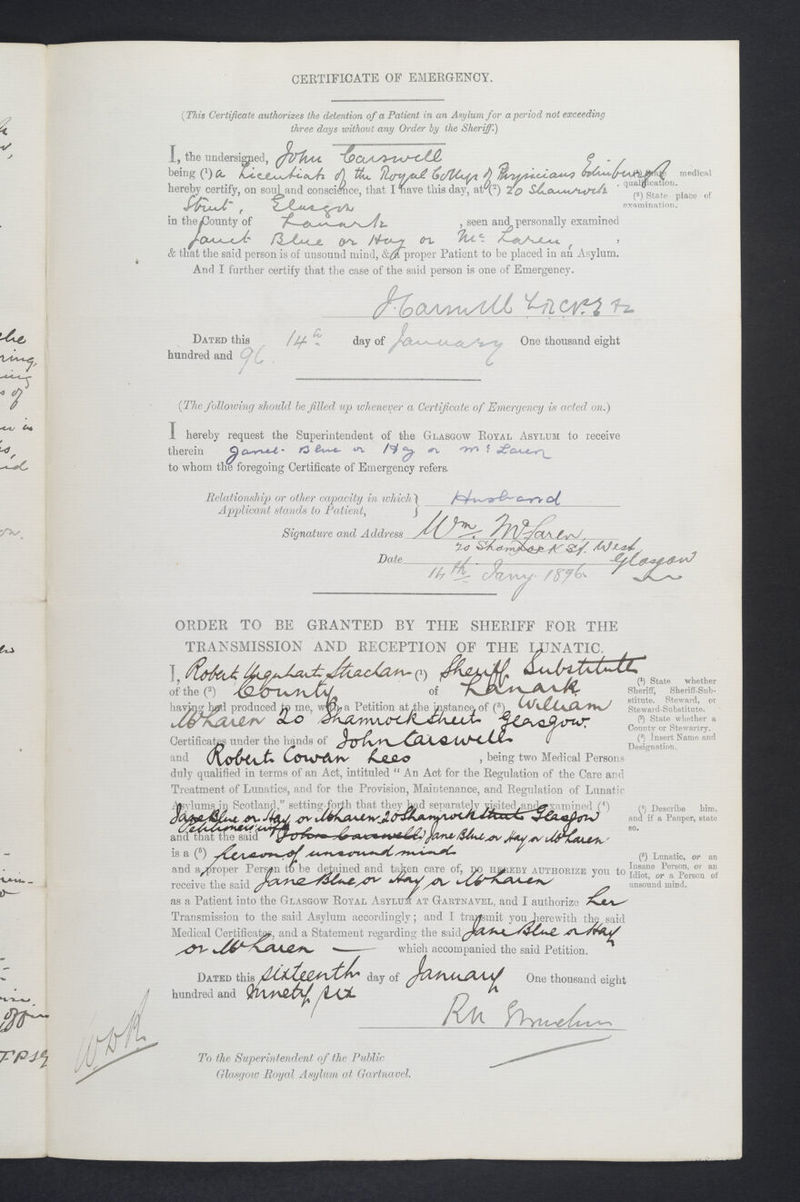 CERTIFICATE OF EMERGENCY.
(This Certificate authorizes the detention of a Patient in an Asylum for a period not exceeding
three days without any Order by the Sheriff.)
I, the undersigned, John Carswell
being (¹) a Licentiate of the Royal College of Physicians Edinburgh
medical
qualification.
hereby certify, on soul and conscience, that I have this day, at (²) 20 Shamrock
(²) State place of
examination.
Street, Glasgow
in the County of Lanark, seen and personally examined
Janet Blue or Hay or McLaren,
& that the said person is of unsound mind, & a proper Patient to be placed in an Asylum.
And I further certify that the case of the said person is one of Emergency.
J. Carswell L.R.C.P.E
DATED this 14th day of January One thousand eight
hundred and 96.
(The following should be filled up whenever a Certificate of Emergency is acted on.)
I hereby request the Superintendent of the GLASGOW ROYAL ASYLUM to receive
therein Janet Blue or Hay or McLaren
to whom the foregoing Certificate of Emergency refers.
Relationship or other capacity in which
Applicant stands to Patient, } Husband
Signature and Address Wm. McLaren
20 Shamrock St. West
Glasgow
Date 14th Jany 1896
ORDER TO BE GRANTED BY THE SHERIFF FOR THE
TRANSMISSION AND RECEPTION OF THE LUNATIC.
I, Robert Urquhart Strachan (¹) Sheriff Substitute
of the (²) County of Lanark
(¹) State whether
Sheriff, Sheriff-Sub-
stitute, Steward, or
Steward-Substitute.
having had produced to me, with a Petition at the instance of (³) William
McLaren 20 Shamrock Street Glasgow
(²) State whether a
County or Stewartry.
Certificates under the hands of John Carswell
(³) Insert Name and
Designation.
and Robert Cowan Lees, being two Medical Persons
duly qualified in terms of an Act, intituled "An Act for the Regulation of the Care and
Treatment of Lunatics, and for the Provision, Maintenance, and Regulation of Lunatic
Asylums in Scotland," setting forth that they had separately visited and examined (⁴)
(⁴) Describe him,
and if a Pauper, state
so.
Jane Blue or Hay or McLaren 20 Shamrock Street Glasgow
Petitioner's wife
and that the said John Carswell Jane Blue or Hay or McLaren
is a (⁵) Person of unsound mind
(⁵) Lunatic, or an
Insane Person, or an
Idiot, or a Person of
unsound mind.
and a proper Person to be detained and taken care of, DO HEREBY AUTHORIZE you to
receive the said Jane Blue or Hay or McLaren
as a Patient into the GLASGOW ROYAL ASYLUM AT GARTNAVEL, and I authorize her
Transmission to the said Asylum accordingly; and I transmit you herewith the said
Medical Certificates, and a Statement regarding the said Jane Blue or Hay
or McLaren which accompanied the said Petition.
DATED this Sixteenth day of January One thousand eight
hundred and Ninety six
To the Superintendent of the Public
Glasgow Royal Asylum at Gartnavel.